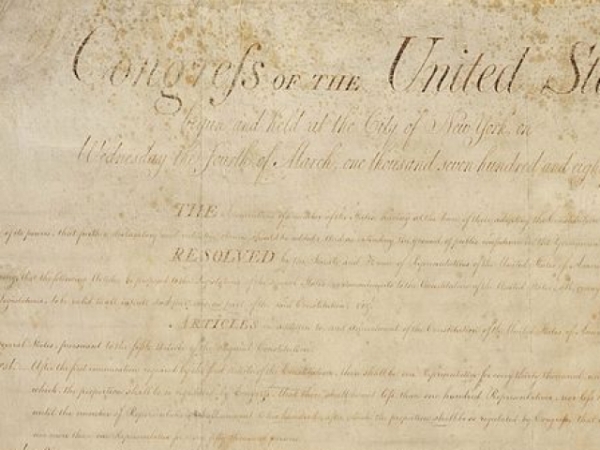 Congreſs OF THE United Sta
begun and held at the City of New York, on
Wednesday the Fourth of March, one thousand seven hundred and eigh
THE Conventions of a number of the States, having at the time of their adopting the Constitution
of its powers, that further declaratory and restrictive clauses should be added: And as extending the ground of public confidence in the Government
RESOLVED by the Senate and House of Representatives of the United States of Amer
that the following Articles be proposed to the Legislatures of the several States, as amendments to the Constitution of the United States,
Legislatures, to be valid to all intents and purposes, as part of the said Constitution; viz.
ARTICLES in addition to, and Amendment of the Constitution of the United States of Amer
several States, pursuant to the fifth Article of the original Constitution.
After the first enumeration required by the first Article of the Constitution, there shall be one Representative for every thirty thousand, unt
which, the proportion shall be so regulated by Congreſs, that there shall be not leſs than one hundred Representatives, nor leſs
until the number of Representatives shall amount to two hundred, after which the proportion shall be so regulated by Congreſs, that
nor more than one Representative for every fifty thousand persons.